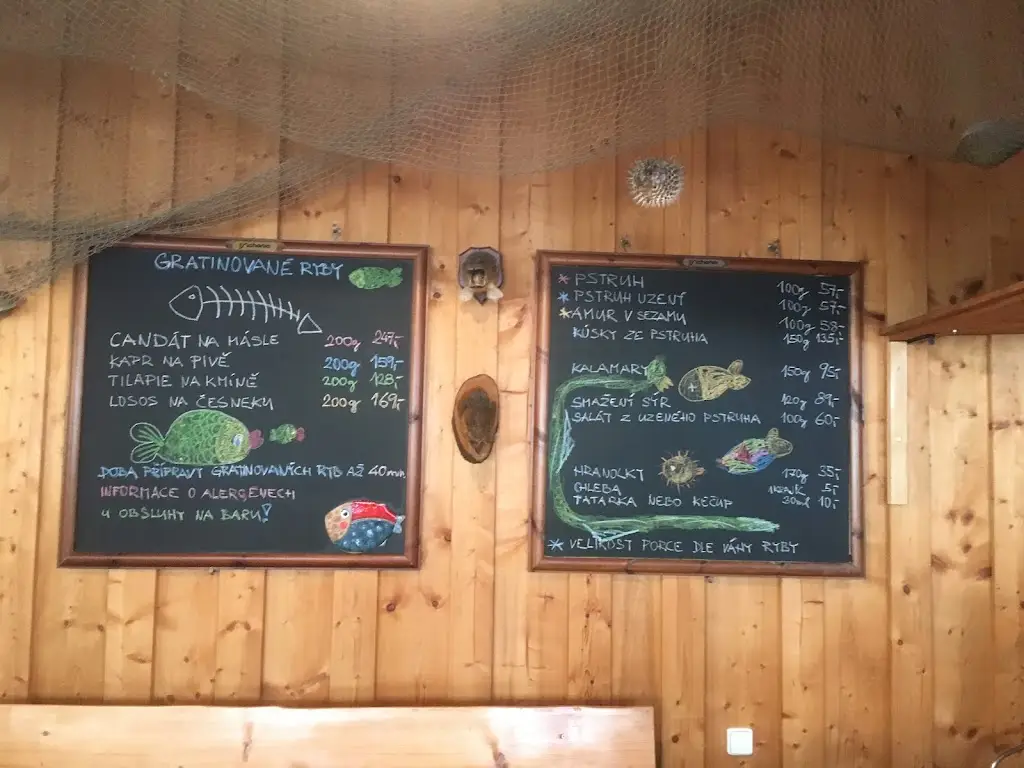 GRATINOVANÉ RYBY
CANDÁT NA MÁSLE 200g 247,-
KAPR NA PIVĚ 200g 159,-
TILAPIE NA KMÍNĚ 200g 128,-
LOSOS NA ČESNEKU 200g 169,-
DOBA PŘÍPRAVY GRATINOVANÝCH RYB AŽ 40 min
INFORMACE O ALERGENECH
U OBSLUHY NA BARU!
* PSTRUH 100g 57,-
* PSTRUH UZENÝ 100g 57,-
* AMUR V SEZAMU 100g 58,-
KÚSKY ZE PSTRUHA 150g 135,-
KALAMARY 150g 95,-
SMAŽENÝ SÝR 120g 89,-
SALÁT Z UZENÉHO PSTRUHA 100g 60,-
HRANOLKY 170g 35,-
CHLEBA 5,-
TATARKA NEBO KEČUP 30ml 10,-
* VELIKOST PORCE DLE VÁHY RYBY